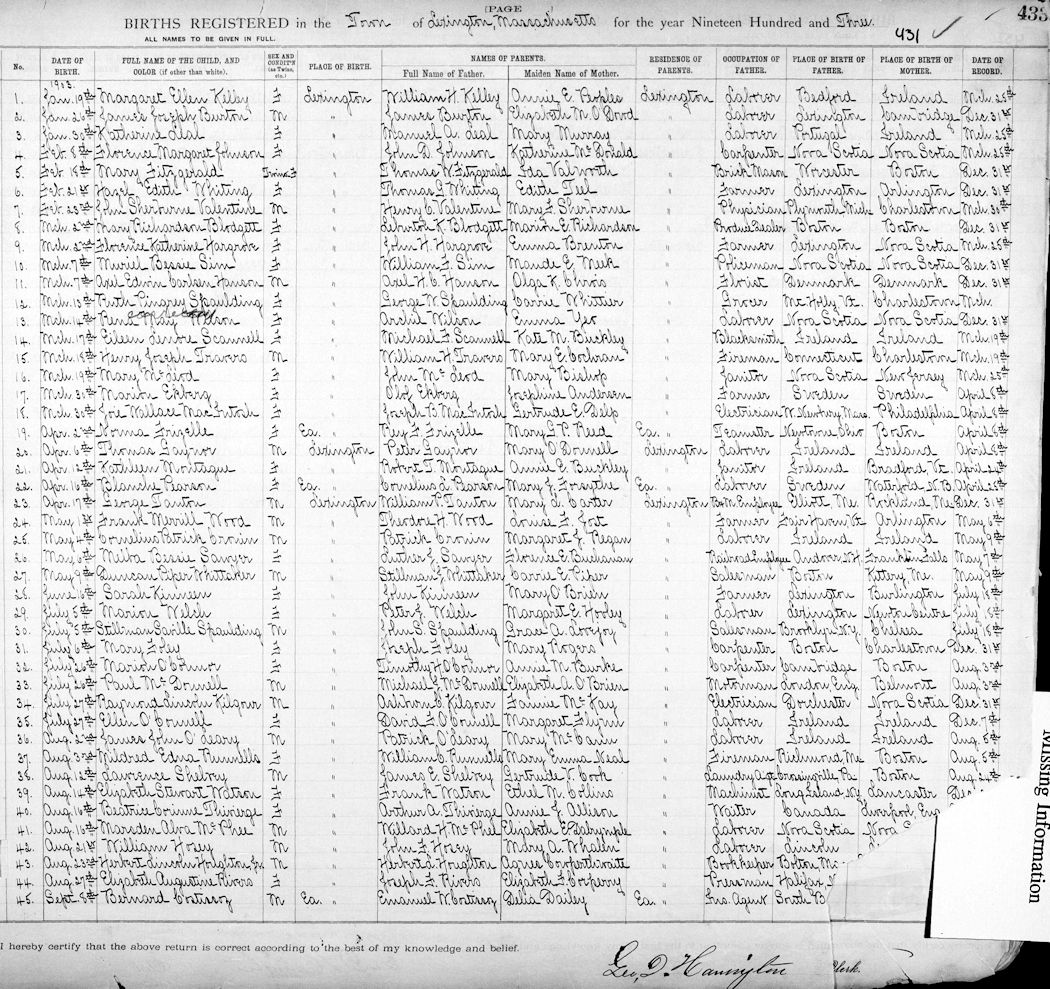 PAGE
433
BIRTHS REGISTERED in the Town of Lexington, Massachusetts for the year Nineteen Hundred and Three.
431
ALL NAMES TO BE GIVEN IN FULL.
No. DATE OF BIRTH. FULL NAME OF THE CHILD, AND COLOR (if other than white). SEX AND CONDIT'N (as Twins, etc.) PLACE OF BIRTH. NAMES OF PARENTS. Full Name of Father. Maiden Name of Mother. RESIDENCE OF PARENTS. OCCUPATION OF FATHER. PLACE OF BIRTH OF FATHER. PLACE OF BIRTH OF MOTHER. DATE OF RECORD.
1903.
1. Jan. 19th Margaret Ellen Kelley F Lexington William H. Kelley Annie E. Lexington Laborer Bedford Ireland Mch. 25th
2. Jan. 26th James Joseph Burton M " James Burton Elizabeth M. O'Dowd " Laborer Lexington Cambridge Dec. 31st
3. Jan. 30th Katherine Leal F " Manuel A. Leal Mary Murray " Laborer Portugal Ireland Mch. 25th
4. Feb. 8th Florence Margaret Johnson F " John D. Johnson Katherine McDonald " Carpenter Nova Scotia Nova Scotia Mch. 25th
5. Feb. 18th Mary Fitzgerald " Thomas W. Fitzgerald Ida Valworth " Brick Mason Worcester Boston Dec. 31st
6. Feb. 21st Hazel Edith Whiting F " Thomas G. Whiting Edith Teel " Farmer Lexington Arlington Dec. 31st
7. Feb. 23rd John Sherburne Valentine M " Henry C. Valentine Mary F. Sherburne " Physician Plymouth, Mich. Charlestown Mch. 30th
8. Mch. 2nd Mary Richardson Blodgett F " Leburton K. Blodgett Marion E. Richardson " Produce Dealer Boston Boston Dec. 31st
9. Mch. 2nd Florence Katherine Hargrove F " John H. Hargrove Emma Brenton " Farmer Lexington Nova Scotia Mch. 25th
10. Mch. 7th Muriel Bessie Sim F " William F. Sim Maude E. Meek " Policeman Nova Scotia Nova Scotia Dec. 31st
11. Mch. 7th Axel Edwin Carlsen Hanson M " Axel H. C. Hanson Olga K. " Florist Denmark Denmark Dec. 31st
12. Mch. 13th Ruth Pingrey Spaulding F " George W. Spaulding Carrie Whittier " Grocer Mt. Holly Vt. Charlestown Mch.
13. Mch. 14th Rena May Wilson F " Archie Wilson Emma Yeo " Laborer Nova Scotia Nova Scotia Dec. 31st
14. Mch. 17th Eileen Lenore Scannell F " Michael F. Scannell Kate M. Buckley " Blacksmith Ireland Ireland Mch. 19th
15. Mch. 18th Henry Joseph Travers M " William H. Travers Mary E. Cochran " Fireman Connecticut Charlestown Mch. 19th
16. Mch. 19th Mary McLeod F " John McLeod Mary Bishop " Janitor Nova Scotia New Jersey Mch. 25th
17. Mch. 31st Marion Ekberg F " Olof Ekberg Josephine Andersen " Farmer Sweden Sweden April 8th
18. Mch. 30th Wallace MacIntosh F " Joseph B. MacIntosh Gertrude E. Delp " Electrician W. Newbury, Mass. Philadelphia April 8th
19. Apr. 2nd Norma Frizelle F Ea. " Rey F. Frizelle Mary G. P. Reed Ea. " Teamster Boston April 8th
20. Apr. 6th Thomas Gaynor M Lexington Peter Gaynor Mary O'Donnell Lexington Laborer Ireland Ireland April 8th
21. Apr. 12th Kathleen Montague F " Robert T. Montague Annie E. Buckley " Janitor Ireland Bradford Vt. April 24th
22. Apr. 16th Blanche Pearson F Ea. " Cornelius L. Pearson Mary J. Forsythe Ea. " Laborer Sweden Waterford N.B. April 25th
23. Apr. 17th George Tanton M Lexington William P. Tanton Mary L. Carter Lexington B&M Employee Elliott, Me. Rockland Me. Dec. 31st
24. May 1st Frank Merrill Wood M " Theodore H. Wood Louise F. Fort " Farmer Fair Haven Vt. Arlington May 6th
25. May 4th Cornelius Patrick Cronin M " Patrick Cronin Margaret J. Regan " Laborer Ireland Ireland May 9th
26. May 6th Melba Bessie Sawyer F " Luther J. Sawyer Florence E. Buchanan " Railroad Employee Andover N.H. Franklin Falls May 7th
27. May 9th Duncan Piper Whittaker M " Stillman J. Whittaker Carrie E. Piper " Salesman Boston Kittery, Me. May 9th
28. June 16th Sarah Kinneen F " John Kinneen Mary O'Brien " Farmer Lexington Burlington July 18th
29. July 5th Marion Welch F " Peter J. Welch Margaret E. Hooley " Laborer Lexington Newton Centre July 18th
30. July 5th Stillman Saville Spaulding M " John S. Spaulding Grace A. Lovejoy " Salesman Brooklyn N.Y. Chelsea July 18th
31. July 6th Mary Foley F " Joseph Foley Mary Rogers " Carpenter Boston Charlestown Dec. 31st
32. July 26th Marion O'Connor F " Timothy H. O'Connor Annie M. Burke " Carpenter Cambridge Boston Aug. 3rd
33. July 26th Paul McDonnell M " Michael J. McDonnell Elizabeth A. O'Brien " Motorman London, Eng. Belmont Aug. 3rd
34. July 27th Raymond Lincoln Kilgour M " Ashborn C. Kilgour Fannie McKay " Electrician Dorchester Nova Scotia Dec. 31st
35. July 27th Ellen O'Connell F " David F. O'Connell Margaret Flynn " Laborer Ireland Ireland Dec. 7th
36. Aug. 2nd James John O'Leary M " Patrick O'Leary Mary McCann " Laborer Ireland Ireland Aug. 5th
37. Aug. 3rd Mildred Edna Runnells F " William C. Runnells Mary Emma Neal " Fireman Richmond Me. Boston Aug. 5th
38. Aug. 12th Lawrence Shelvey M " James E. Shelvey Gertrude V. Cook " Laundry Agt. Pa. Boston Aug. 24th
39. Aug. 14th Elizabeth Stewart Watson F " Frank Watson Ethel M. Collins " Machinist Long Island, N.Y. Lancaster Dec.
40. Aug. 16th Beatrice Corinne Thivierge F " Arthur A. Thivierge Annie J. Allison " Waiter Canada Liverpool, Eng.
41. Aug. 16th Marsden Alva McPhee M " Willard H. McPhee Elizabeth E. Dalrymple " Laborer Nova Scotia Nova S
42. Aug. 21st William Hosey M " John J. Hosey Mary A. Whalen " Laborer Lincoln
43. Aug. 23rd Herbert Lincoln Houghton, Jr. M " Herbert L. Houghton Agnes Cooperthwaite " Bookkeeper Bolton, Ma
44. Aug. 27th Elizabeth Augustine Rivers F " Joseph F. Rivers Elizabeth F. " Pressman Halifax, N
45. Sept. 8th Bernard Costisoz M Ea. " Emanuel W. Costisoz Delia Dailey Ea. " Ins. Agent South B
I hereby certify that the above return is correct according to the best of my knowledge and belief.
Geo. D. Harrington Clerk.
Missing Information